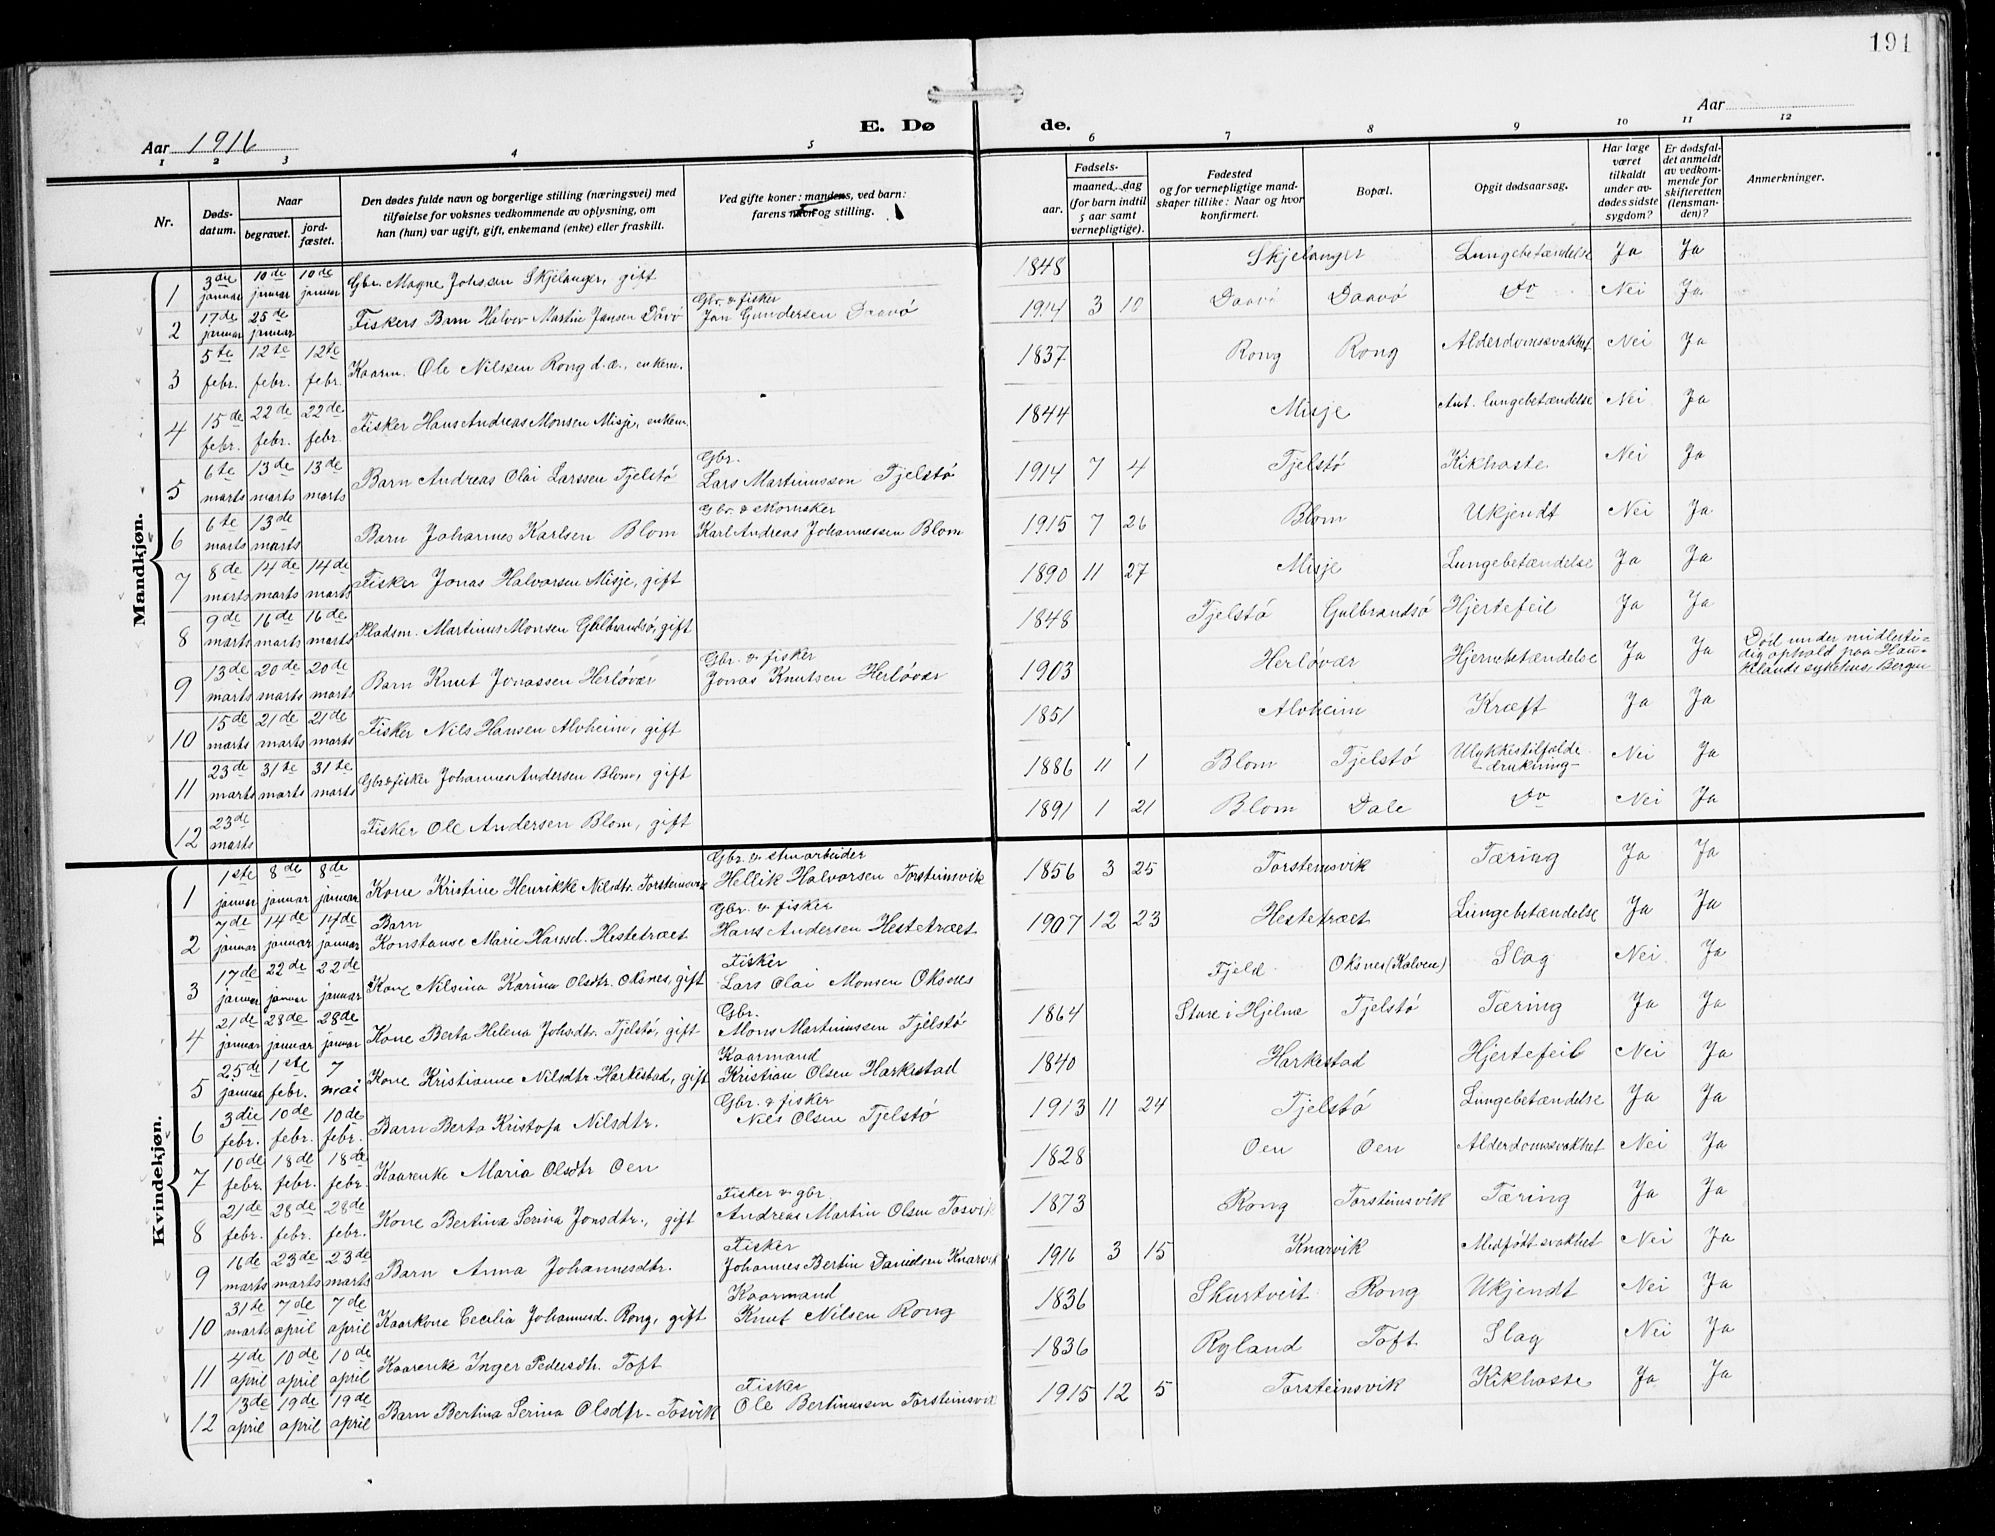 191
Aar 1916
E. Dø de.
Aar
1 2 3 4 5 6 7 8 9 10 11 12
Nr. | Døds-datum. | Naar begravet. | jord-fæstet. | Den dødes fulde navn og borgerlige stilling (næringsvei) med tilføielse for voksnes vedkommende av oplysning, om han (hun) var ugift, gift, enkemand (enke) eller fraskilt. | Ved gifte koner: mandens, ved barn: farens navn og stilling. | Fødsels- aar. | maaned, dag (for barn indtil 5 aar samt vernepligtige). | Fødested og for vernepligtige mandskaper tillike: Naar og hvor konfirmert. | Bopæl. | Opgit dødsaarsag. | Har læge været tilkaldt under avdødes sidste sygdom? | Er dødsfaldet anmeldt av vedkommende for skifteretten (lensmanden)? | Anmerkninger.
Mandkjøn.
1 | 3die januar | 10de januar | 10de januar | Gbr. Magne Johssen Skjelanger, gift | | 1848 | | | Skjelanger | | Lungebetændelse | Ja | Ja
2 | 17de januar | 25de januar | | Fiskers Barn Halvor Martin Jansen Dávö | Gbr. & fisker Jan Gundersen Daavö | 1914 | 3 | 10 | Daavö | Daavö | Do | Nei | Ja
3 | 5te febr. | 12te febr. | 12te febr. | Kaarm. Ole Nilssen Rong d.æ., enkem. | | 1837 | | | Rong | Rong | Alderdomssvakhet | Nei | Ja
4 | 15de febr. | 22de febr. | 22de febr. | Fisker Hans Andreas Monsen Misje, enkem. | | 1844 | | | Misje | | Ant. lungebetændelse | Nei | Ja
5 | 6te marts | 13de marts | 13de marts | Barn Andreas Olai Larssen Tjelstö | Gbr. Lars Martinusson Tjelstö | 1914 | 7 | 4 | Tjelstö | | Kikhoste | Nei | Ja
6 | 6te marts | 13de marts | | Barn Johannes Karlsen Blom | Gbr. & skomaker Karl Andreas Johannessen Blom | 1915 | 7 | 26 | Blom | | Ukjendt | Nei | Ja
7 | 8de marts | 14de marts | 14de marts | Fisker Jonas Halvorsen Misje, gift | | 1890 | 11 | 27 | Misje | | Lungebetændelse | Ja | Ja
8 | 9de marts | 16de marts | 16de marts | Pladsm. Martinus Monsen Gulbrandsö, gift | | 1848 | | | Tjelstö | Gulbrandsö | Hjertefeil | Ja | Ja
9 | 13de marts | 20de marts | 20de marts | Barn Knut Jonassen Herlövær | Gbr. & fisker Jonas Knutsen Herlövær | 1903 | | | Herlövær | | Hjernebetændelse | Ja | Ja | Död under midlerti-dig ophold paa Hau-kelands sykehus Bergen
10 | 15de marts | 21de marts | 21de marts | Fisker Nils Hansen Alvheim, gift | | 1851 | | | Alvheim | | Kræft | Ja | Ja
11 | 23de marts | 31te marts | 31te marts | Gbr & fisker Johannes Andersen Blom, gift | | 1886 | 11 | 1 | Blom | Tjelstö | Ulykkestilfælde -drukning- | Nei | Ja
12 | 23de marts | | | Fisker Ole Andersen Blom, gift | | 1891 | 1 | 21 | Blom | Dale | Do | Nei | Ja
Kvindekjøn.
1 | 1ste januar | 8de januar | 8de januar | Kone Kristine Henrikke Nilsdtr. Torsteinsvik | Gbr. & stuarbeider Hellik Halvorsen Torsteinsvik | 1856 | 3 | 25 | Torsteinsvik | | Tæring | Ja | Ja
2 | 7de januar | 14de januar | 14de januar | Barn Konstanse Marie Hansd. Hestetræet | Gbr. & fisker Hans Andersen Hestetræet | 1907 | 12 | 23 | Hestetræet | | Lungebetændelse | Ja | Ja
3 | 17de januar | 22de januar | 22de januar | Kone Nilsina Karina Olsdtr. Oksnes, gift | Fisker Lars Olai Monsen Oksnes | | | | Fjeld | Oksnes (Kalven) | Slag | Nei | Ja
4 | 21de januar | 28de januar | 28de januar | Kone Berta Helena Johsdtr. Tjelstö, gift | Gbr. Mons Martinussen Tjelstö | 1864 | | | Sture i Hjelme | Tjelstö | Tæring | Ja | Ja
5 | 25de januar | 1ste febr. | 7 mai | Kone Kristianne Nilsdtr Harkestad, gift | Kaarmand Kristian Olsen Harkestad | 1840 | | | Harkestad | | Hjertefeil | Nei | Ja
6 | 3die febr. | 10de febr. | 10de febr. | Barn Berta Kristofa Nilsdtr. | Gbr. & fisker Nils Olsen Tjelstö | 1913 | 11 | 24 | Tjelstö | | Lungebetændelse | Ja | Ja
7 | 10de febr. | 18de febr. | 18de febr. | Kaarenke Maria Olsdtr Oen | | 1828 | | | Oen | Oen | Alderdomssvakhet | Nei | Ja
8 | 21de febr. | 28de febr. | 28de febr. | Kone Bertina Serina Jonsdtr., gift | Fisker & gbr. Andreas Martin Olsen Tosvik | 1873 | | | Rong | Torsteinsvik | Tæring | Ja | Ja
9 | 16de marts | 23de marts | 23de marts | Barn Anna Johannesdtr. | Fisker Johannes Bertin Danielsen Knarvik | 1916 | 3 | 15 | Knarvik | | Medfödt svakhet | Nei | Ja
10 | 31te marts | 7de april | 7de april | Kaarkone Cecilia Johannesd. Rong, gift | Kaarmand Knut Nilsen Rong | 1836 | | | Skurtveit | Rong | Ukjendt | Nei | Ja
11 | 4de april | 10de april | 10de april | Kaarenke Inger Pedersdtr. Toft | | 1836 | | | Ryland | Toft | Slag | Nei | Ja
12 | 13de april | 19de april | 19de april | Barn Bertina Serina Olsdtr. Tosvik | Fisker Ole Bertinussen Torsteinsvik | 1915 | 12 | 5 | Torsteinsvik | | Kikhoste | Ja | Ja